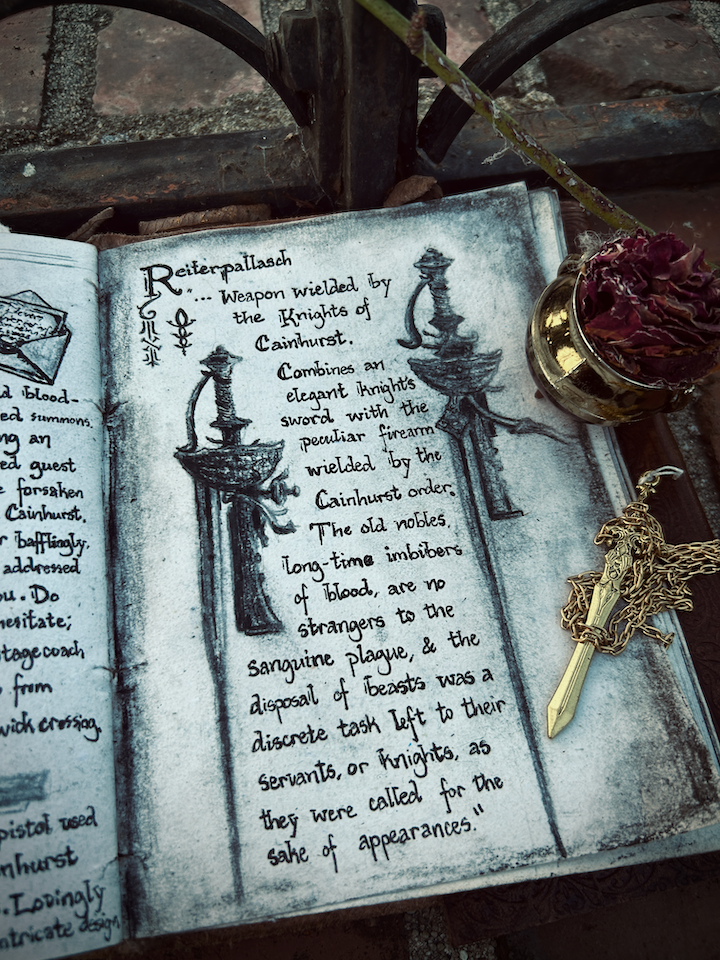 d blood-
ed summons.
ng an
ed guest
e forsaken
Cainhurst.
r bafflingly,
addressed
ou. Do
hesitate;
stagecoach
from
wick crossing.
pistol used
inhurst
. Lovingly
intricate design
Reiterpallasch
"... Weapon wielded by
the Knights of
Cainhurst.
Combines an
elegant knight's
sword with the
peculiar firearm
wielded by the
Cainhurst order.
The old nobles,
long-time imbibers
of blood, are no
strangers to the
sanguine plague, & the
disposal of beasts was a
discrete task left to their
servants, or knights, as
they were called for the
sake of appearances."